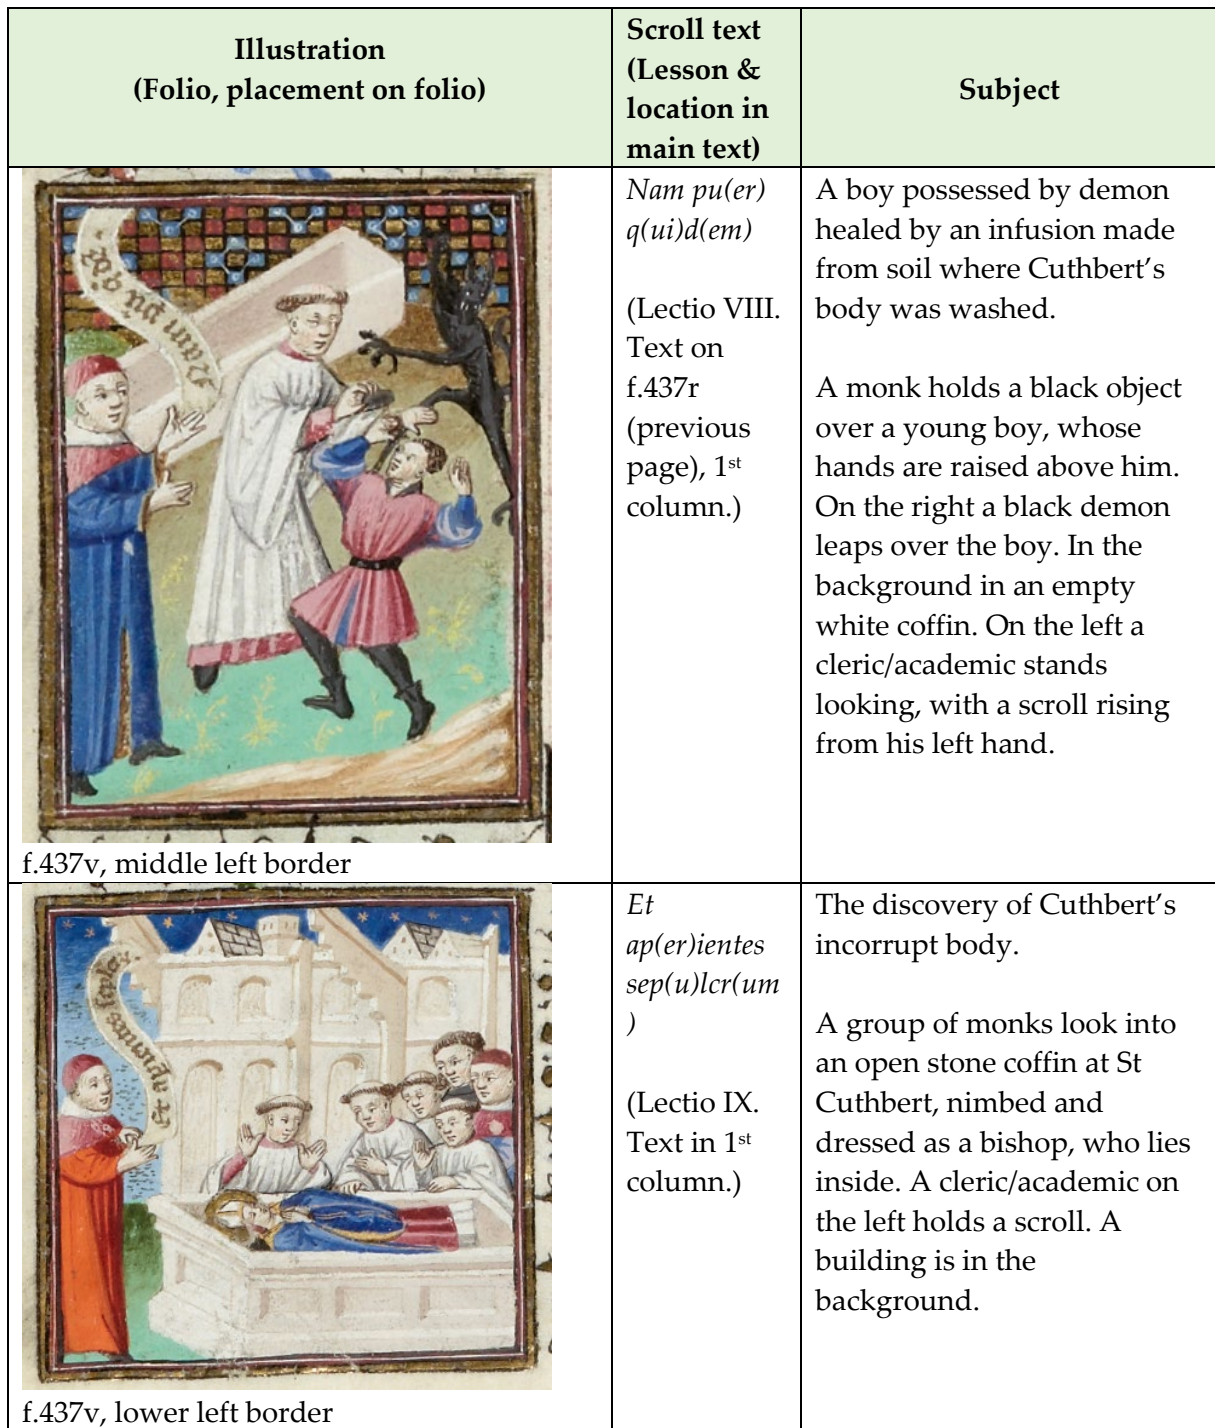 Illustration
(Folio, placement on folio)
Scroll text
(Lesson &
location in
main text)
Subject
Nam pu(er)
q(ui)d(em)
(Lectio VIII.
Text on
f.437r
(previous
page), 1st
column.)
A boy possessed by demon
healed by an infusion made
from soil where Cuthbert’s
body was washed.
A monk holds a black object
over a young boy, whose
hands are raised above him.
On the right a black demon
leaps over the boy. In the
background in an empty
white coffin. On the left a
cleric/academic stands
looking, with a scroll rising
from his left hand.
f.437v, middle left border
Et
ap(er)ientes
sep(u)lcr(um
)
(Lectio IX.
Text in 1st
column.)
The discovery of Cuthbert’s
incorrupt body.
A group of monks look into
an open stone coffin at St
Cuthbert, nimbed and
dressed as a bishop, who lies
inside. A cleric/academic on
the left holds a scroll. A
building is in the
background.
f.437v, lower left border